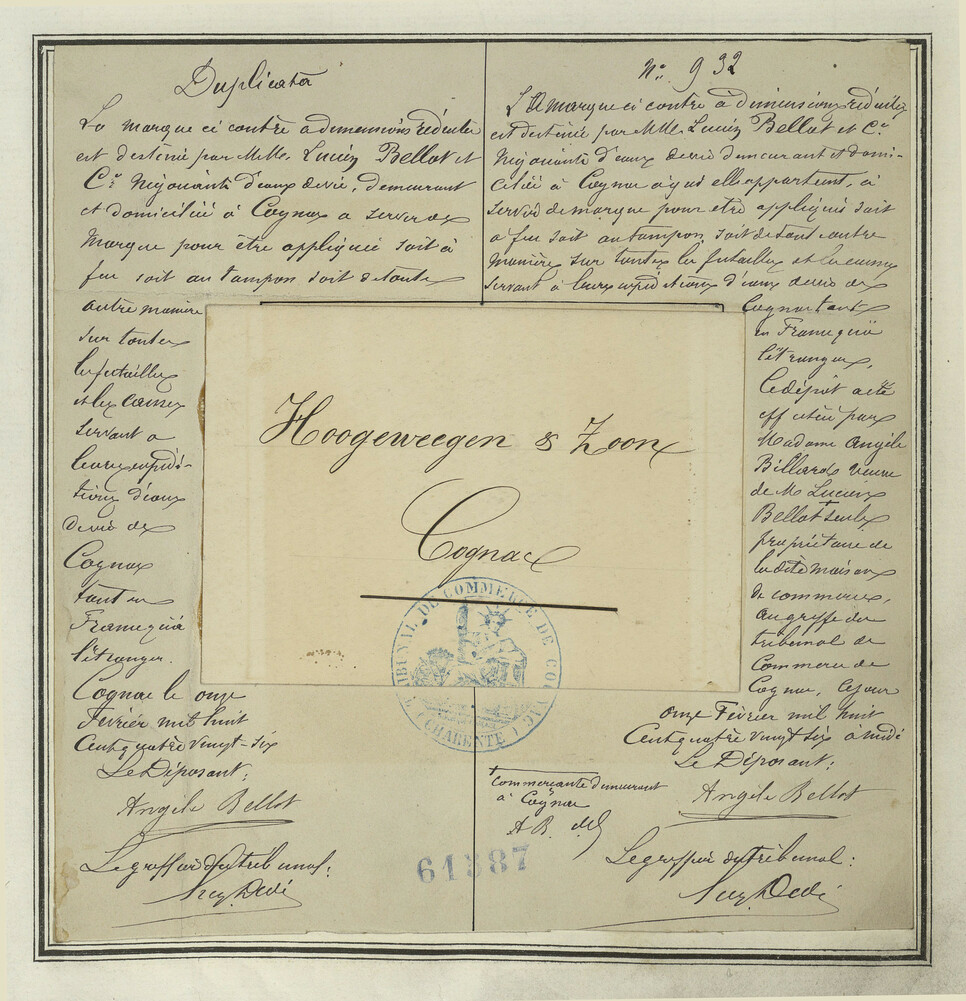 Duplicata
La marque ci contre à dimensions réduites
est destinée par M.M. Lucien Bellot et
Cie Négociants d'eaux de vie, demeurant
et domiciliés à Cognac a servir de
Marque pour être appliquée soit à
feu soit au tampon soit de toute
autre manière
sur toutes
les futailles
et les caisses
servant a
leurs expédi-
tions d'eaux
de vie de
Cognac
tant en
France qu'à
l'étranger.
Cognac le onze
Février mil huit
Cent quatre vingt-six
Le Déposant:
Angèle Bellot
Le greffier du tribunal:
No 932
La marque ci contre à dimensions réduites
est destinée par M.M. Lucien Bellot et Cie
Négociants d'eaux de vie demeurant et domi-
ciliés à Cognac à qui elle appartient, à
servir de marque pour être appliquée soit
à feu soit au tampon, soit de tout autre
manière sur toutes les futailles et les caisses
servant à leurs expéditions d'eaux de vie de
Cognac tant
en France qu'à
l'étranger,
Le dépôt a été
effectué par
Madame Angèle
Billard veuve
de M. Lucien
Bellot seule
propriétaire de
la dite maison
de commerce,
au greffe du
tribunal de
Commerce de
Cognac, ce jour
onze Février mil huit
Cent quatre vingt six à midi
Le Déposant:
Angèle Bellot
Le greffier du tribunal:
+ Commerçante demeurant
à Cognac
A B.
Hoogeweegen & Zoon
Cognac
TRIBUNAL DE COMMERCE DE COGNAC
(CHARENTE)
61387